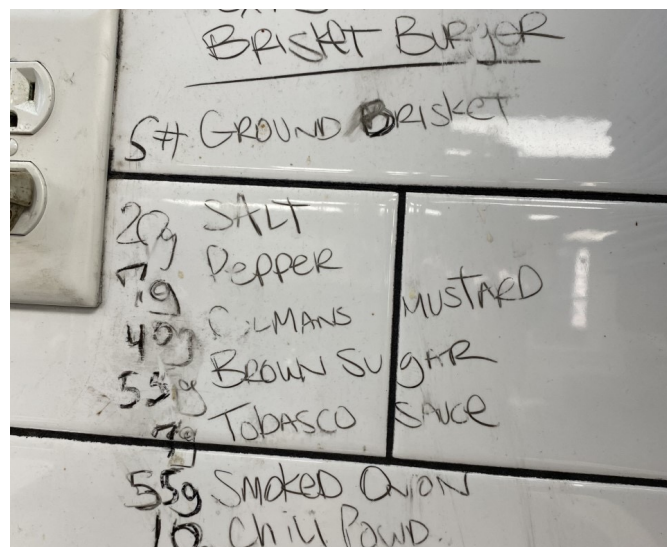 BRISKET BURGER
5# GROUND BRISKET
20g SALT
7g PEPPER
40g COLMANS MUSTARD
55g BROWN SUGAR
7g TOBASCO SAUCE
55g SMOKED ONION
10 Chili POWD.